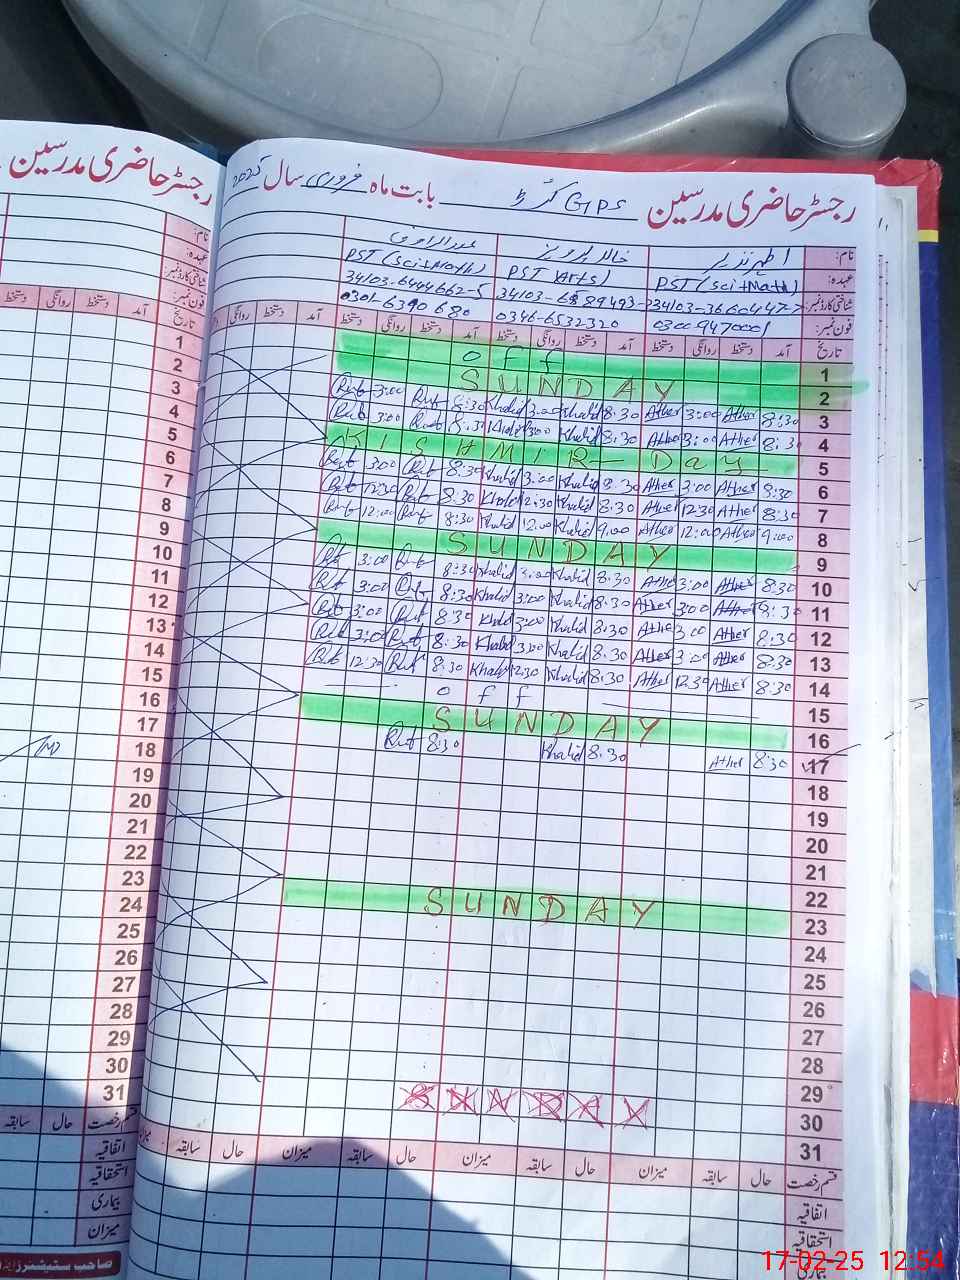 رجسٹر حاضری مدرسین
رجسٹر حاضری مدرسین GPS بابت ماہ فروری سال 2025
نام: اطہر نذیر خالد پرویز
عہدہ: PST (Sci+Math) PST (Arts) PST (Sci+Math)
شناختی کارڈ نمبر: 34103-6444662-5
فون نمبر: 0300 9470001 0346-6532320 0301-6390680
تاریخ آمد دستخط روانگی دستخط آمد دستخط روانگی دستخط آمد دستخط روانگی دستخط آمد دستخط روانگی
1 off
2 SUNDAY
3 8:30 Ather 3:00 Ather 8:30 Khalid 3:00 Khalid 8:30 3:00
4 8:30 Ather 3:00 Ather 8:30 Khalid 3:00 Khalid 8:30 3:00
5 KISHMIR Day
6 8:30 Ather 3:00 Ather 8:30 Khalid 3:00 Khalid 8:30 3:00
7 8:30 Ather 12:30 Ather 8:30 Khalid 12:30 Khalid 8:30 12:30
8 9:00 Ather 12:00 Ather 9:00 Khalid 12:00 Khalid 8:30 12:00
9 SUNDAY
10 8:30 Ather 3:00 Ather 8:30 Khalid 3:00 Khalid 8:30 3:00
11 8:30 Ather 3:00 Ather 8:30 Khalid 3:00 Khalid 8:30 3:00
12 8:30 Ather 3:00 Ather 8:30 Khalid 3:00 Khalid 8:30 3:00
13 8:30 Ather 3:00 Ather 8:30 Khalid 3:00 Khalid 8:30 3:00
14 8:30 Ather 12:30 Ather 8:30 Khalid 12:30 Khalid 8:30 12:30
15 off
16 SUNDAY
17 8:30 Ather 8:30 Khalid 8:30
18
19
20
21
22
23 SUNDAY
24
25
26
27
28
29
30 SUNDAY
31
قسم رخصت حال سابقہ میزان حال سابقہ میزان حال سابقہ میزان حال سابقہ میزان
اتفاقیہ
استحقاقیہ
بیماری
نام:
عہدہ:
شناختی کارڈ نمبر:
فون نمبر:
تاریخ آمد دستخط روانگی دستخط
1
2
3
4
5
6
7
8
9
10
11
12
13
14
15
16
17
18
19
20
21
22
23
24
25
26
27
28
29
30
31
قسم رخصت حال سابقہ
اتفاقیہ
استحقاقیہ
بیماری
میزان
صاحب سٹیشنرز
17-02-25 12:54